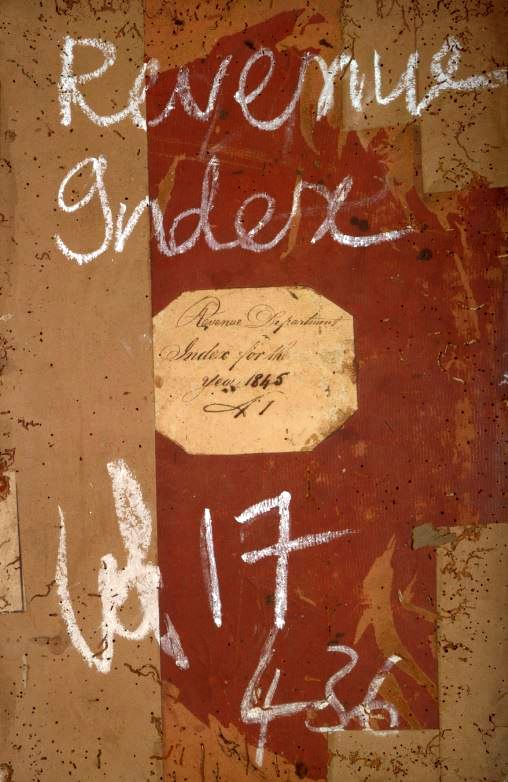 Revenue
Index
Revenue Department
Index for the
year 1845
A 1
Vol. 17
436